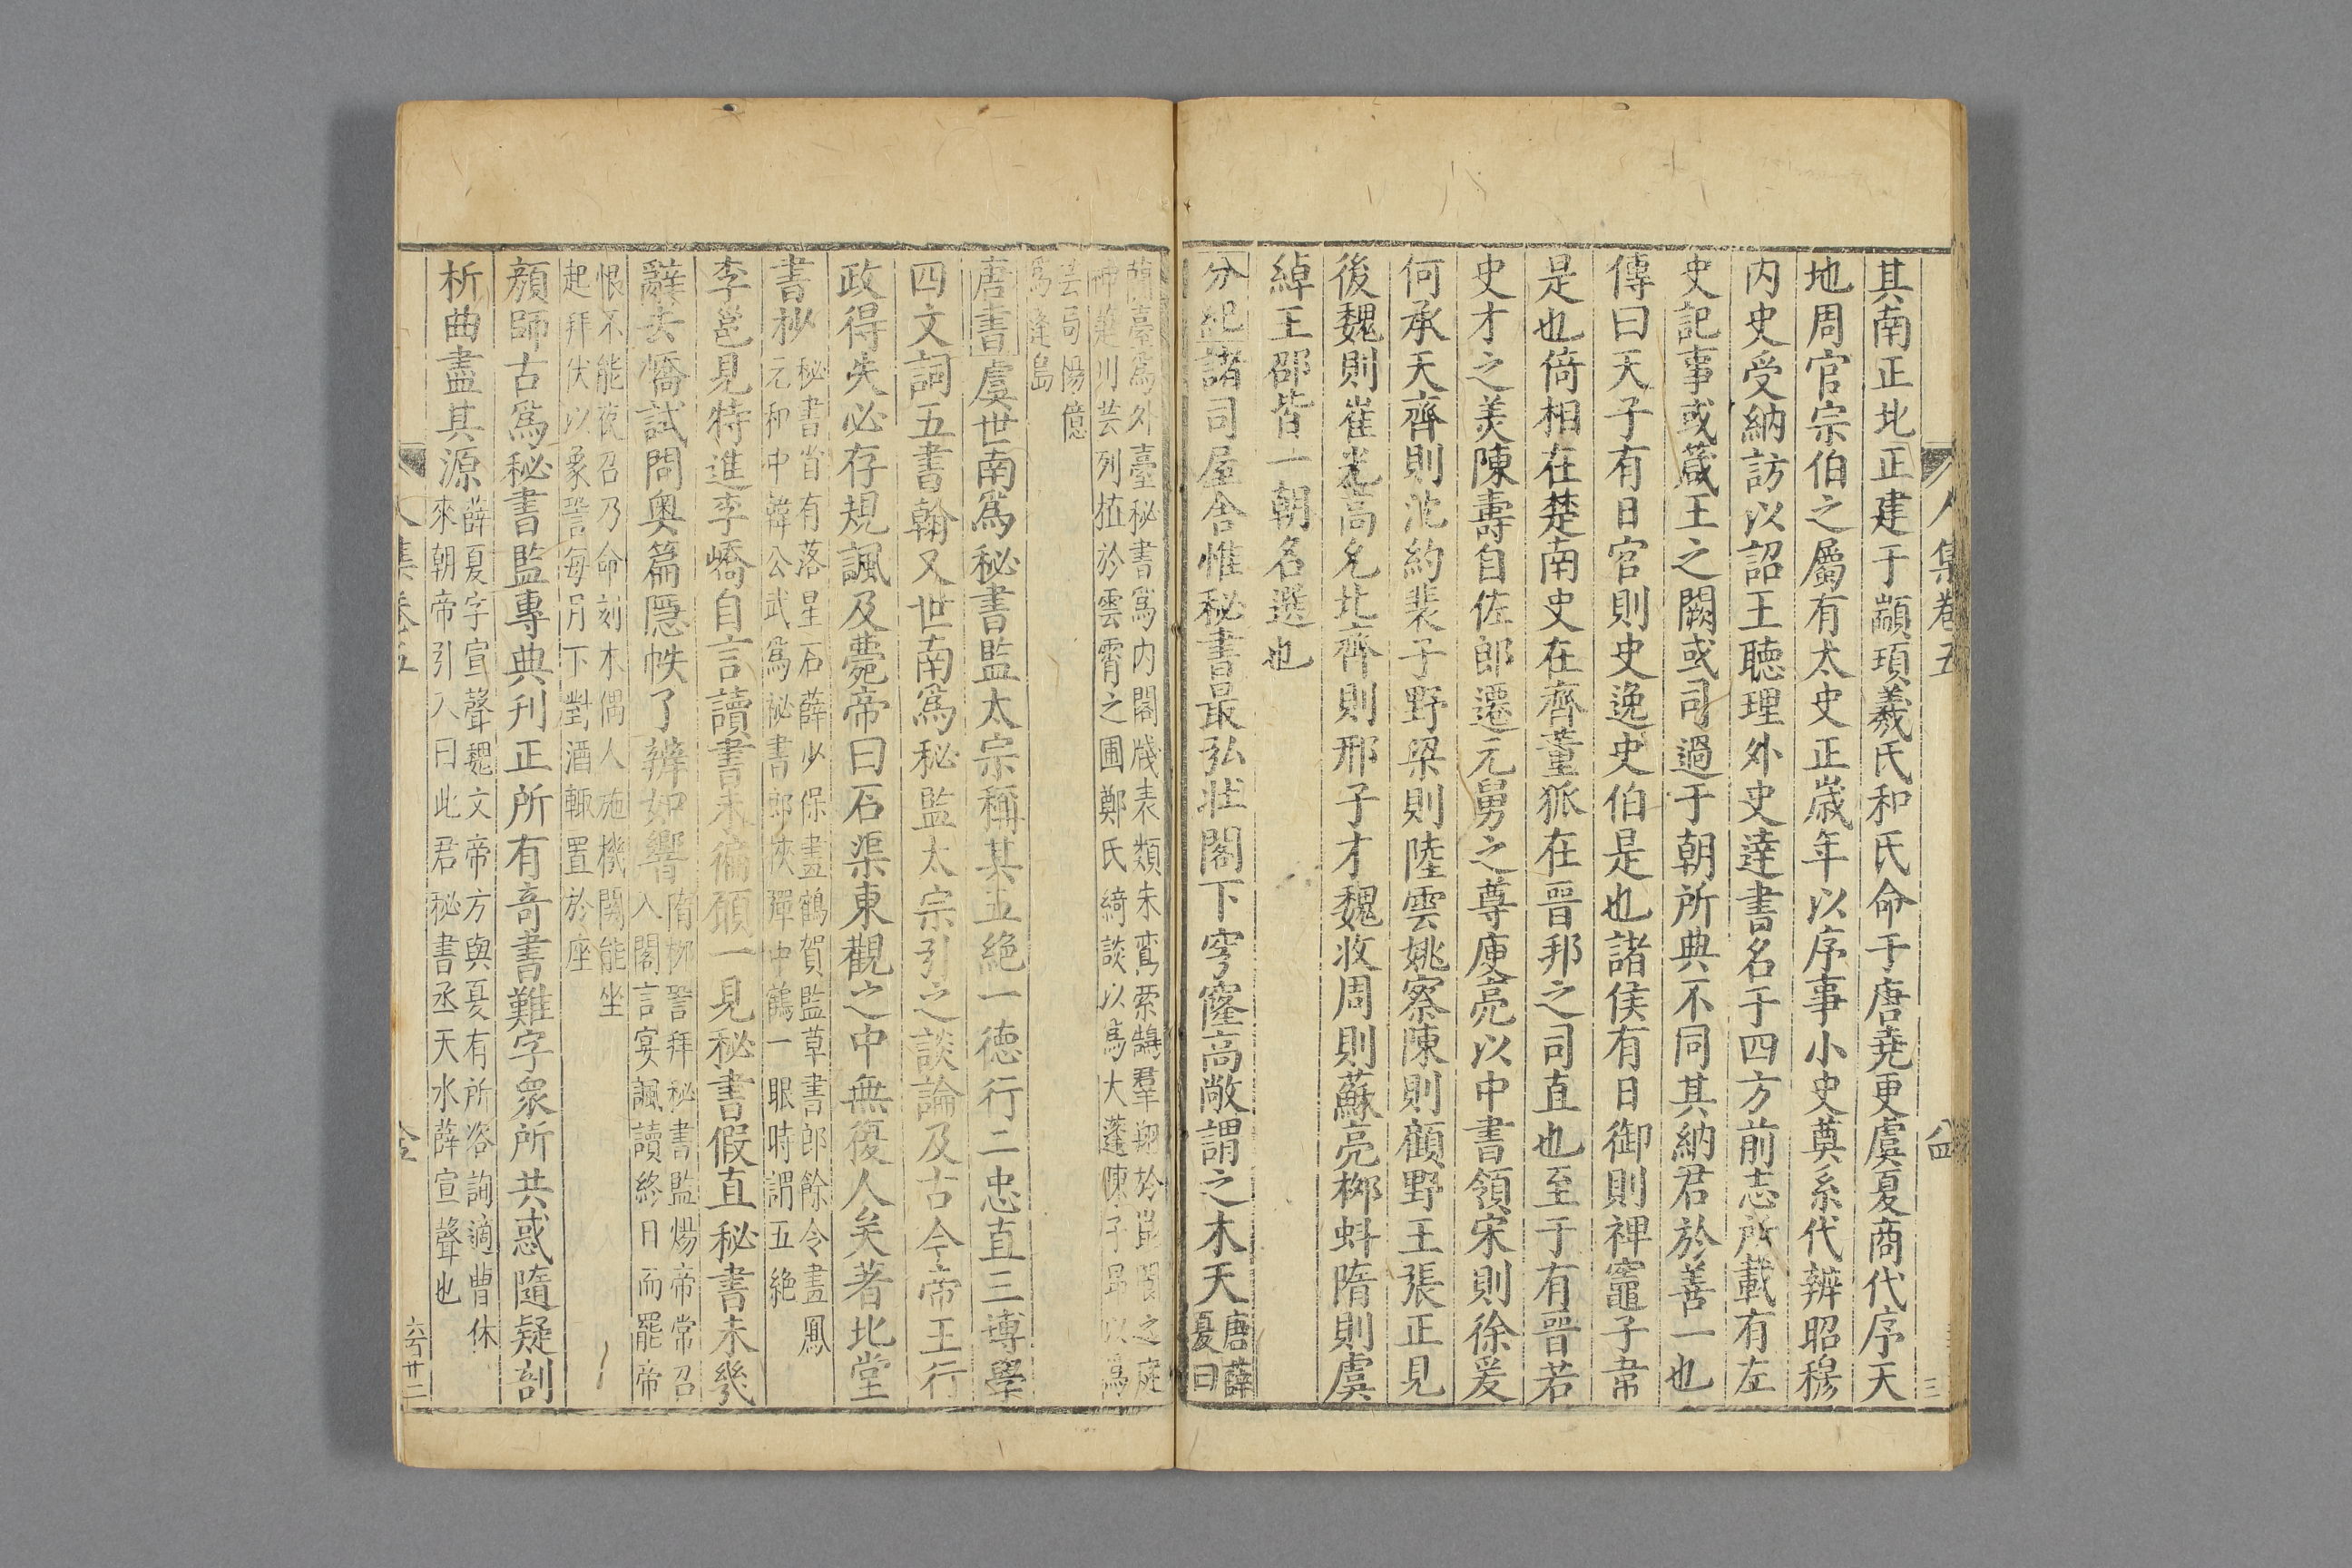 其南正北正建于顓頊羲氏和氏命于唐堯更虞夏商代序天
地周官宗伯之屬有太史正歲年以序事小史奠系代辨昭穆
内史受納訪以詔王聽理外史達書名于四方前志所載有左
史記事或箴王之闕或司過于朝所典不同其納君於善一也
傳曰天子有日官則史逸史伯是也諸侯有日御則裨竈子韋
是也倚相在楚南史在齊董狐在晉邦之司直也至于有晉若
史才之美陳壽自佐郎遷元舅之尊庾亮以中書領宋則徐爰
何承天齊則沈約裴子野梁則陸雲姚察陳則顧野王張正見
後魏則崔光高允北齊則邢子才魏收周則蘇亮柳虯隋則虞
綽王邵皆一朝名選也
分紀諸司屋舍惟秘書最弘壯閣下穹窿高敞謂之木天唐薛
夏曰
蘭臺爲外臺秘書爲内閣
芸列植於雲霄之圃鄭氏綺談以爲大蓬陳子昂以爲
芸局
爲蓬島
唐書虞世南爲秘書監太宗稱其五絶一德行二忠直三博學
四文詞五書翰又世南爲秘監太宗引之談論及古今帝王行
政得失必存規諷及薨帝曰石渠東觀之中無復人矣著北堂
書抄秘書省有落星石薛少保畫鶴賀監草書郎餘令畫鳳
元和中韓公武爲秘書郎挾彈中鶴一眼時謂五絶
李邕見特進李嶠自言讀書未徧願一見秘書假直秘書未幾
辭去嶠試問奥篇隱帙了辨如響隋柳䛒拜秘書監煬帝常召
入閣言宴諷讀終日而罷帝
恨不能夜召乃命刻木偶人施機関能坐
起拜伏以象䛒每月下對酒輙置於座
顔師古爲秘書監專典刋正所有奇書難字衆所共惑隨疑剖
析曲盡其源薛夏字宣聲魏文帝方與夏有所咨詢適曹休
來朝帝引入曰此君秘書丞天水薛宣聲也